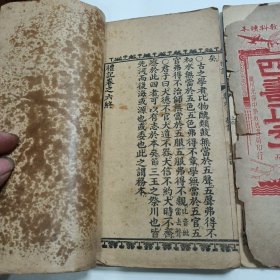 矣
○古之學者比物醜類鼓無當於五聲五聲弗得不
和水無當於五色五色弗得不章學無當於五官五
官弗得不治師無當於五服五服弗得不親
○君子曰大德不官大道不器大信不約大時不齊
察於此四者可以有志於本矣三王之祭川也皆
先河而後海或源也或委也此之謂務本
禮記卷之六終
四書